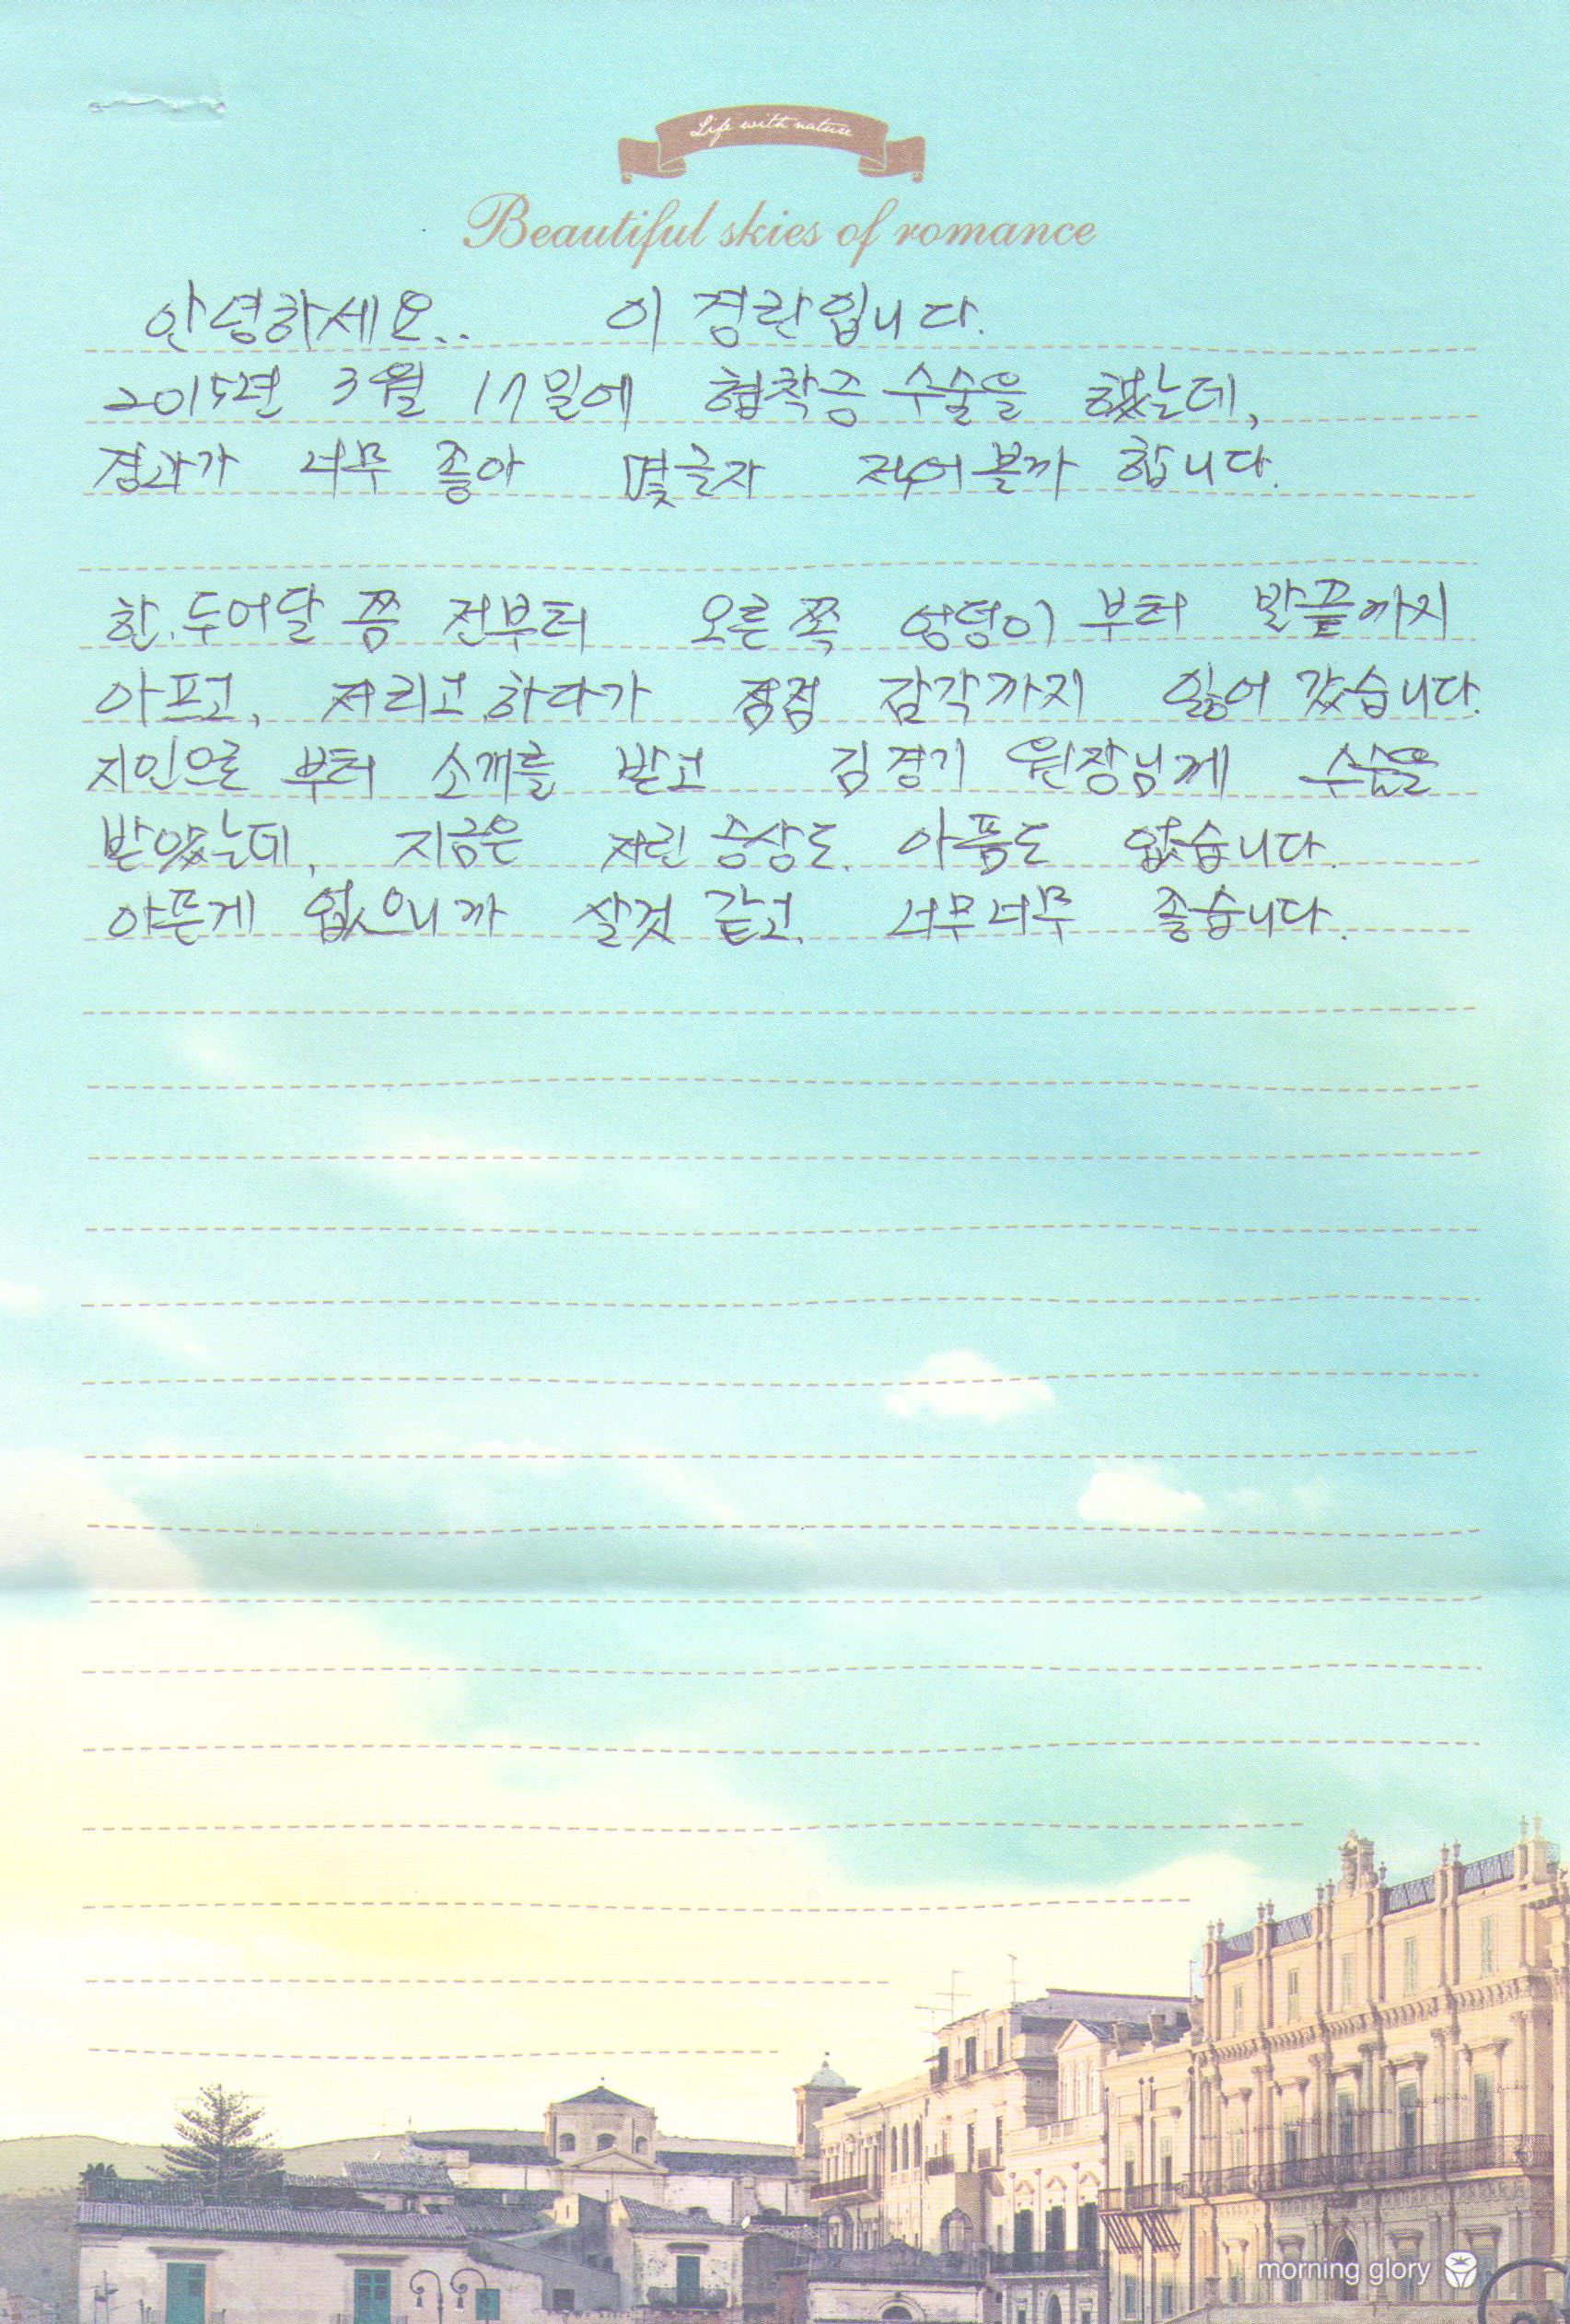 Life with nature
Beautiful skies of romance
안녕하세요.. 이경란입니다.
2015년 3월 17일에 협착증 수술을 했는데,
경과가 너무 좋아 몇글자 적어볼까 합니다.
한.두어달 쯤 전부터 오른쪽 엉덩이부터 발끝까지
아프고, 저리고 하다가 점점 감각까지 잃어 갔습니다.
지인으로 부터 소개를 받고 김경기 원장님께 수술을
받았는데, 지금은 저린 증상도. 아픔도 없습니다.
아픈게 없으니까 살것 같고, 너무너무 좋습니다.
morning glory